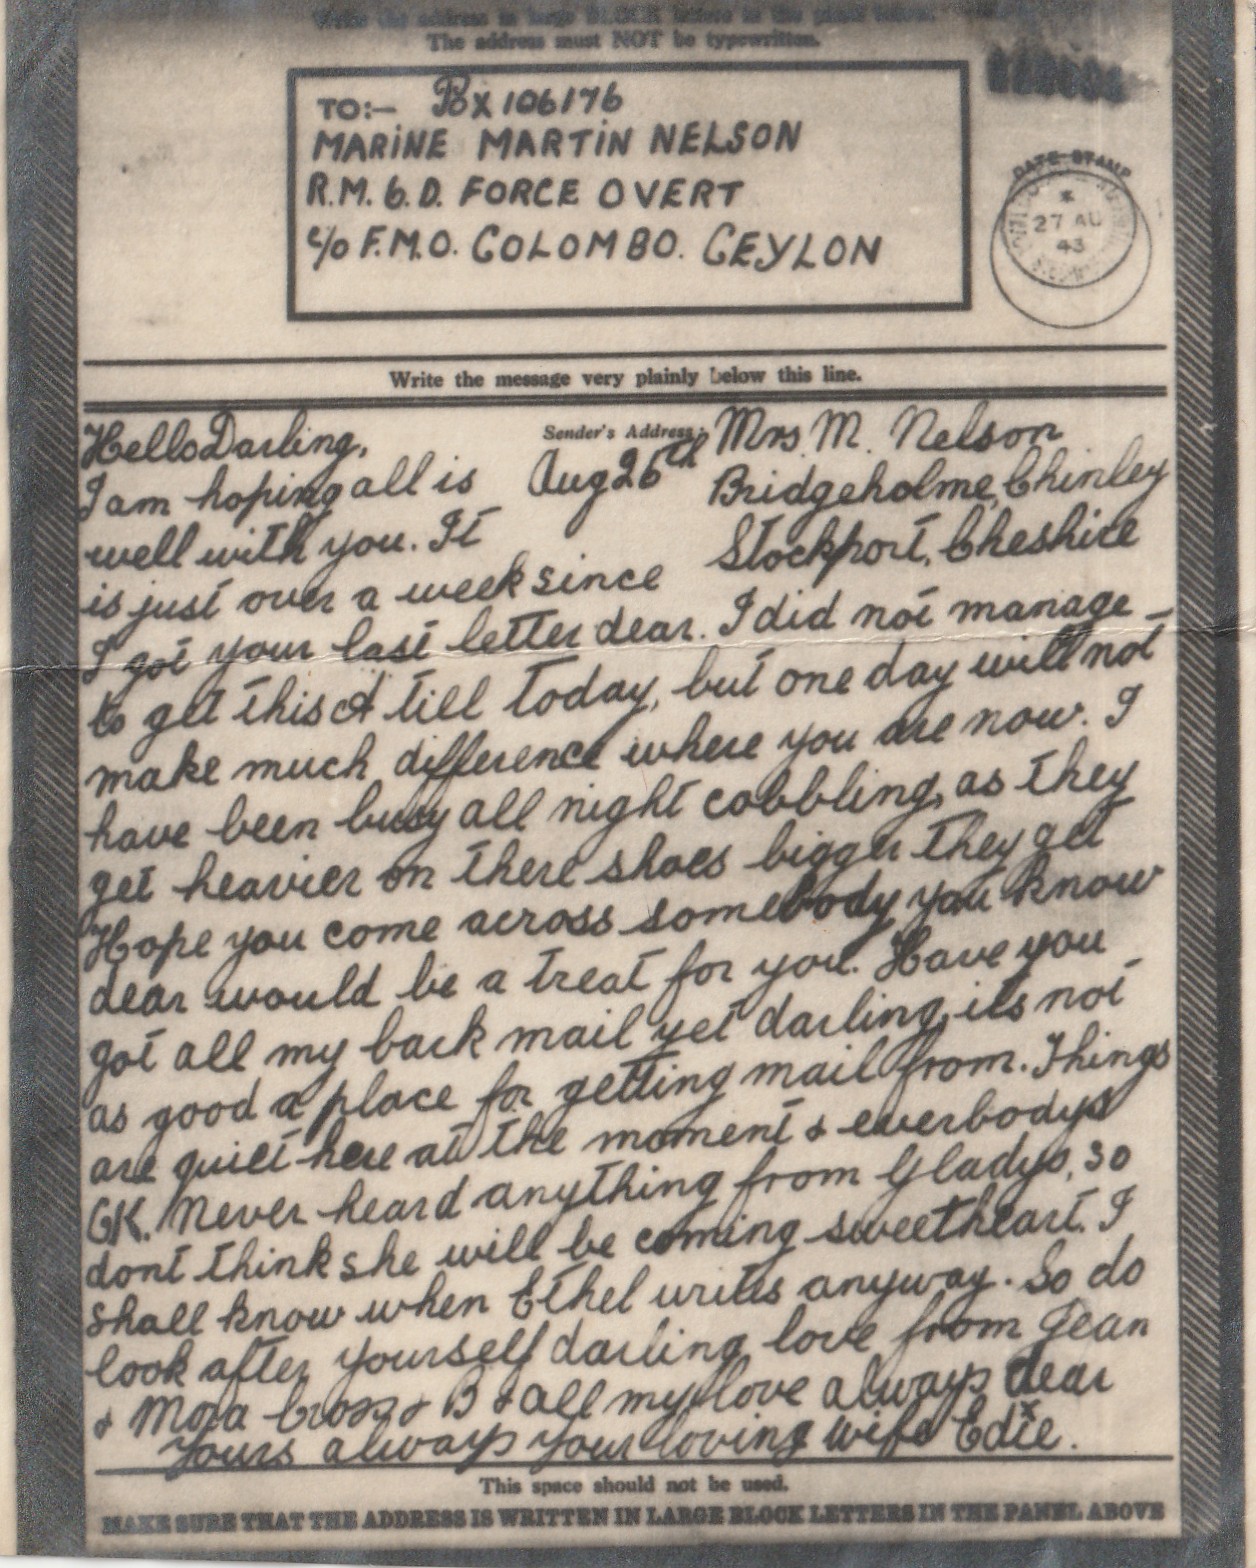 Write the address in large BLOCK letters in the panel below.
The address must NOT be typewritten.
TO:- Bx 106176
MARINE MARTIN NELSON
R.M. 6. D. FORCE OVERT
c/o F.M.O. COLOMBO. CEYLON
DATE STAMP
27 AU
43
Write the message very plainly below this line.
Hello Darling, Sender's Address: Mrs. M. Nelson
I am hoping all is Aug 26th Bridgeholme, Chinley
well with you. It Stockport, Cheshire
is just over a week since
I got your last letter dear. I did not manage
to get this A till today, but one day will not
make much difference where you are now. I
have been busy all night cobbling, as they
get heavier on there shoes bigger they get
Hope you come across somebody you know
dear would be a treat for you. Have you
got all my back mail yet darling, its not
as good a place for getting mail from. Things
are quiet here at the moment & everbodys
OK. Never heard anything from Gladys, so
dont think she will be coming sweetheart. I
shall know when Ethel writes anyway. So do
look after yourself darling love from Jean
& Mona & B & all my love always dear
Yours always your loving wife Edie. x
This space should not be used.
MAKE SURE THAT THE ADDRESS IS WRITTEN IN LARGE BLOCK LETTERS IN THE PANEL ABOVE